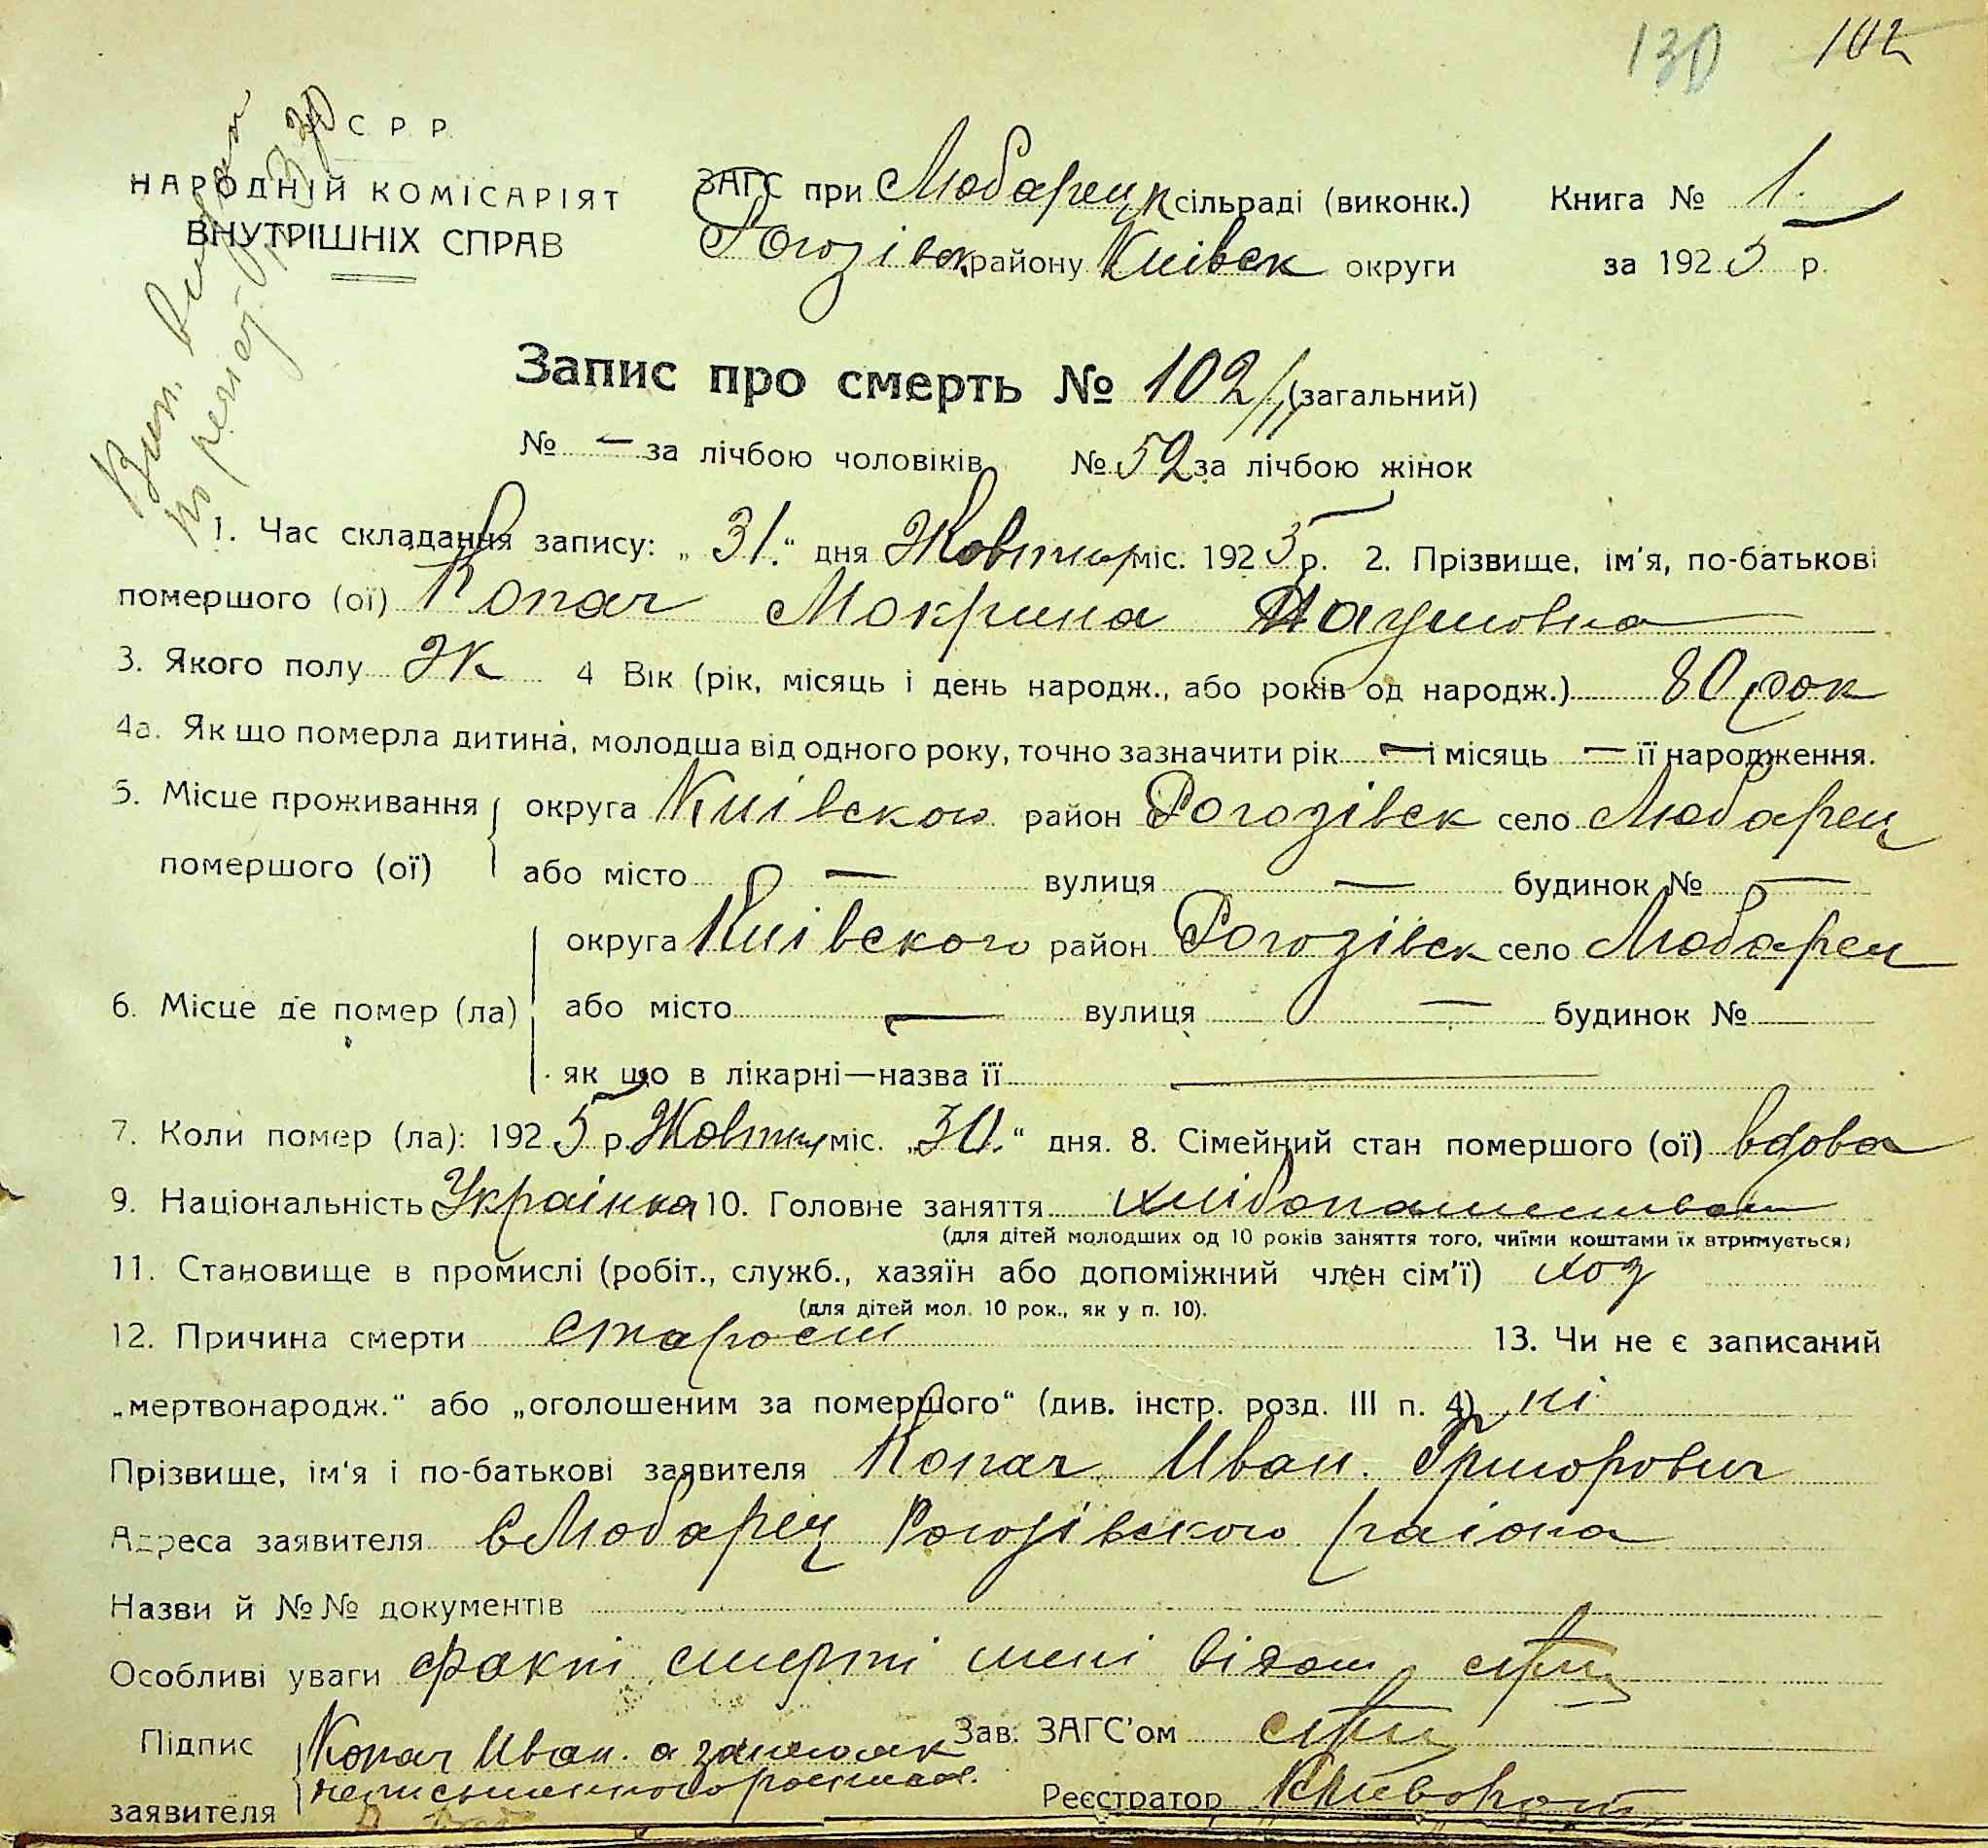 130 102
С. Р. Р.
НАРОДНІЙ КОМІСАРІЯТ
ВНУТРІШНІХ СПРАВ
ЗАГС при Любарецк сільраді (виконк.) Книга № 1.
Рогозівск району Київск округи за 1925 р.
Запис про смерть № 102 (загальний)
№ — за лічбою чоловіків № 52 за лічбою жінок
1. Час складання запису: „31.“ дня Жовтня міс. 1925 р. 2. Прізвище, ім'я, по-батькові
помершого (ої) Копач Мокрина Наумовна
3. Якого полу Ж 4 Вік (рік, місяць і день народж., або років од народж.) 80 рок
4а. Як що померла дитина, молодша від одного року, точно зазначити рік — і місяць — її народження.
5. Місце проживання округа Київского район Рогозівск село Любарец
помершого (ої) або місто — вулиця — будинок № —
округа Київского район Рогозівск село Любарец
6. Місце де помер (ла) або місто — вулиця — будинок №
як що в лікарні—назва її —
7. Коли помер (ла): 1925 р. Жовтня міс. „30.“ дня. 8. Сімейний стан помершого (ої) вдова
9. Національність Українка 10. Головне заняття хлібопашество
(для дітей молодших од 10 років заняття того, чиїми коштами їх втримується)
11. Становище в промислі (робіт., служб., хазяїн або допоміжний член сім'ї) хоз
(для дітей мол. 10 рок., як у п. 10).
12. Причина смерти старости 13. Чи не є записаний
„мертвонародж.“ або „оголошеним за помершого“ (див. інстр. розд. III п. 4) ні
Прізвище, ім'я і по-батькові заявителя Копач Иван. Григорович
Адреса заявителя с Любарец Рогозівского раіона
Назви й №№ документів
Особливі уваги факт смерті мені відом
Підпис Копач Иван. а за
Зав. ЗАГС'ом
заявителя
Реєстратор